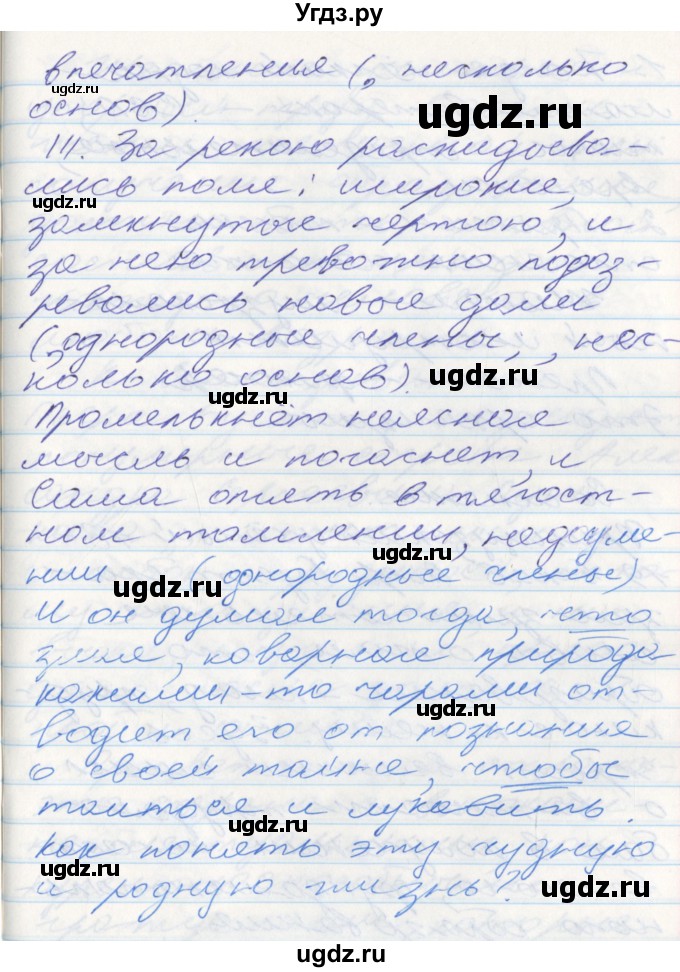 Угдз.ру
впечатления (, несколько
основ).
III. За рекою раскидыва-
лись поля: широкие,
замкнутые чертою, и
за нею тревожно подоз-
ревались новые дали
(, однородные члены, , нес-
колько основ).
Промелькнёт неясная
мысль и погаснет, и
Саша опять в тягост-
ном томлении, недоуме-
нии (однородные члены)
И он думал тогда, что
злая, коварная природа
какими-то чарами от-
водит его от познания
о своей тайне, чтобы
таиться и лукавить.
Как понять эту чудную
и родную жизнь?
ugdz.ru
ugdz.ru
ugdz.ru
ugdz.ru
ugdz.ru
ugdz.ru
ugdz.ru
ugdz.ru
ugdz.ru
ugdz.ru
ugdz.ru
ugdz.ru